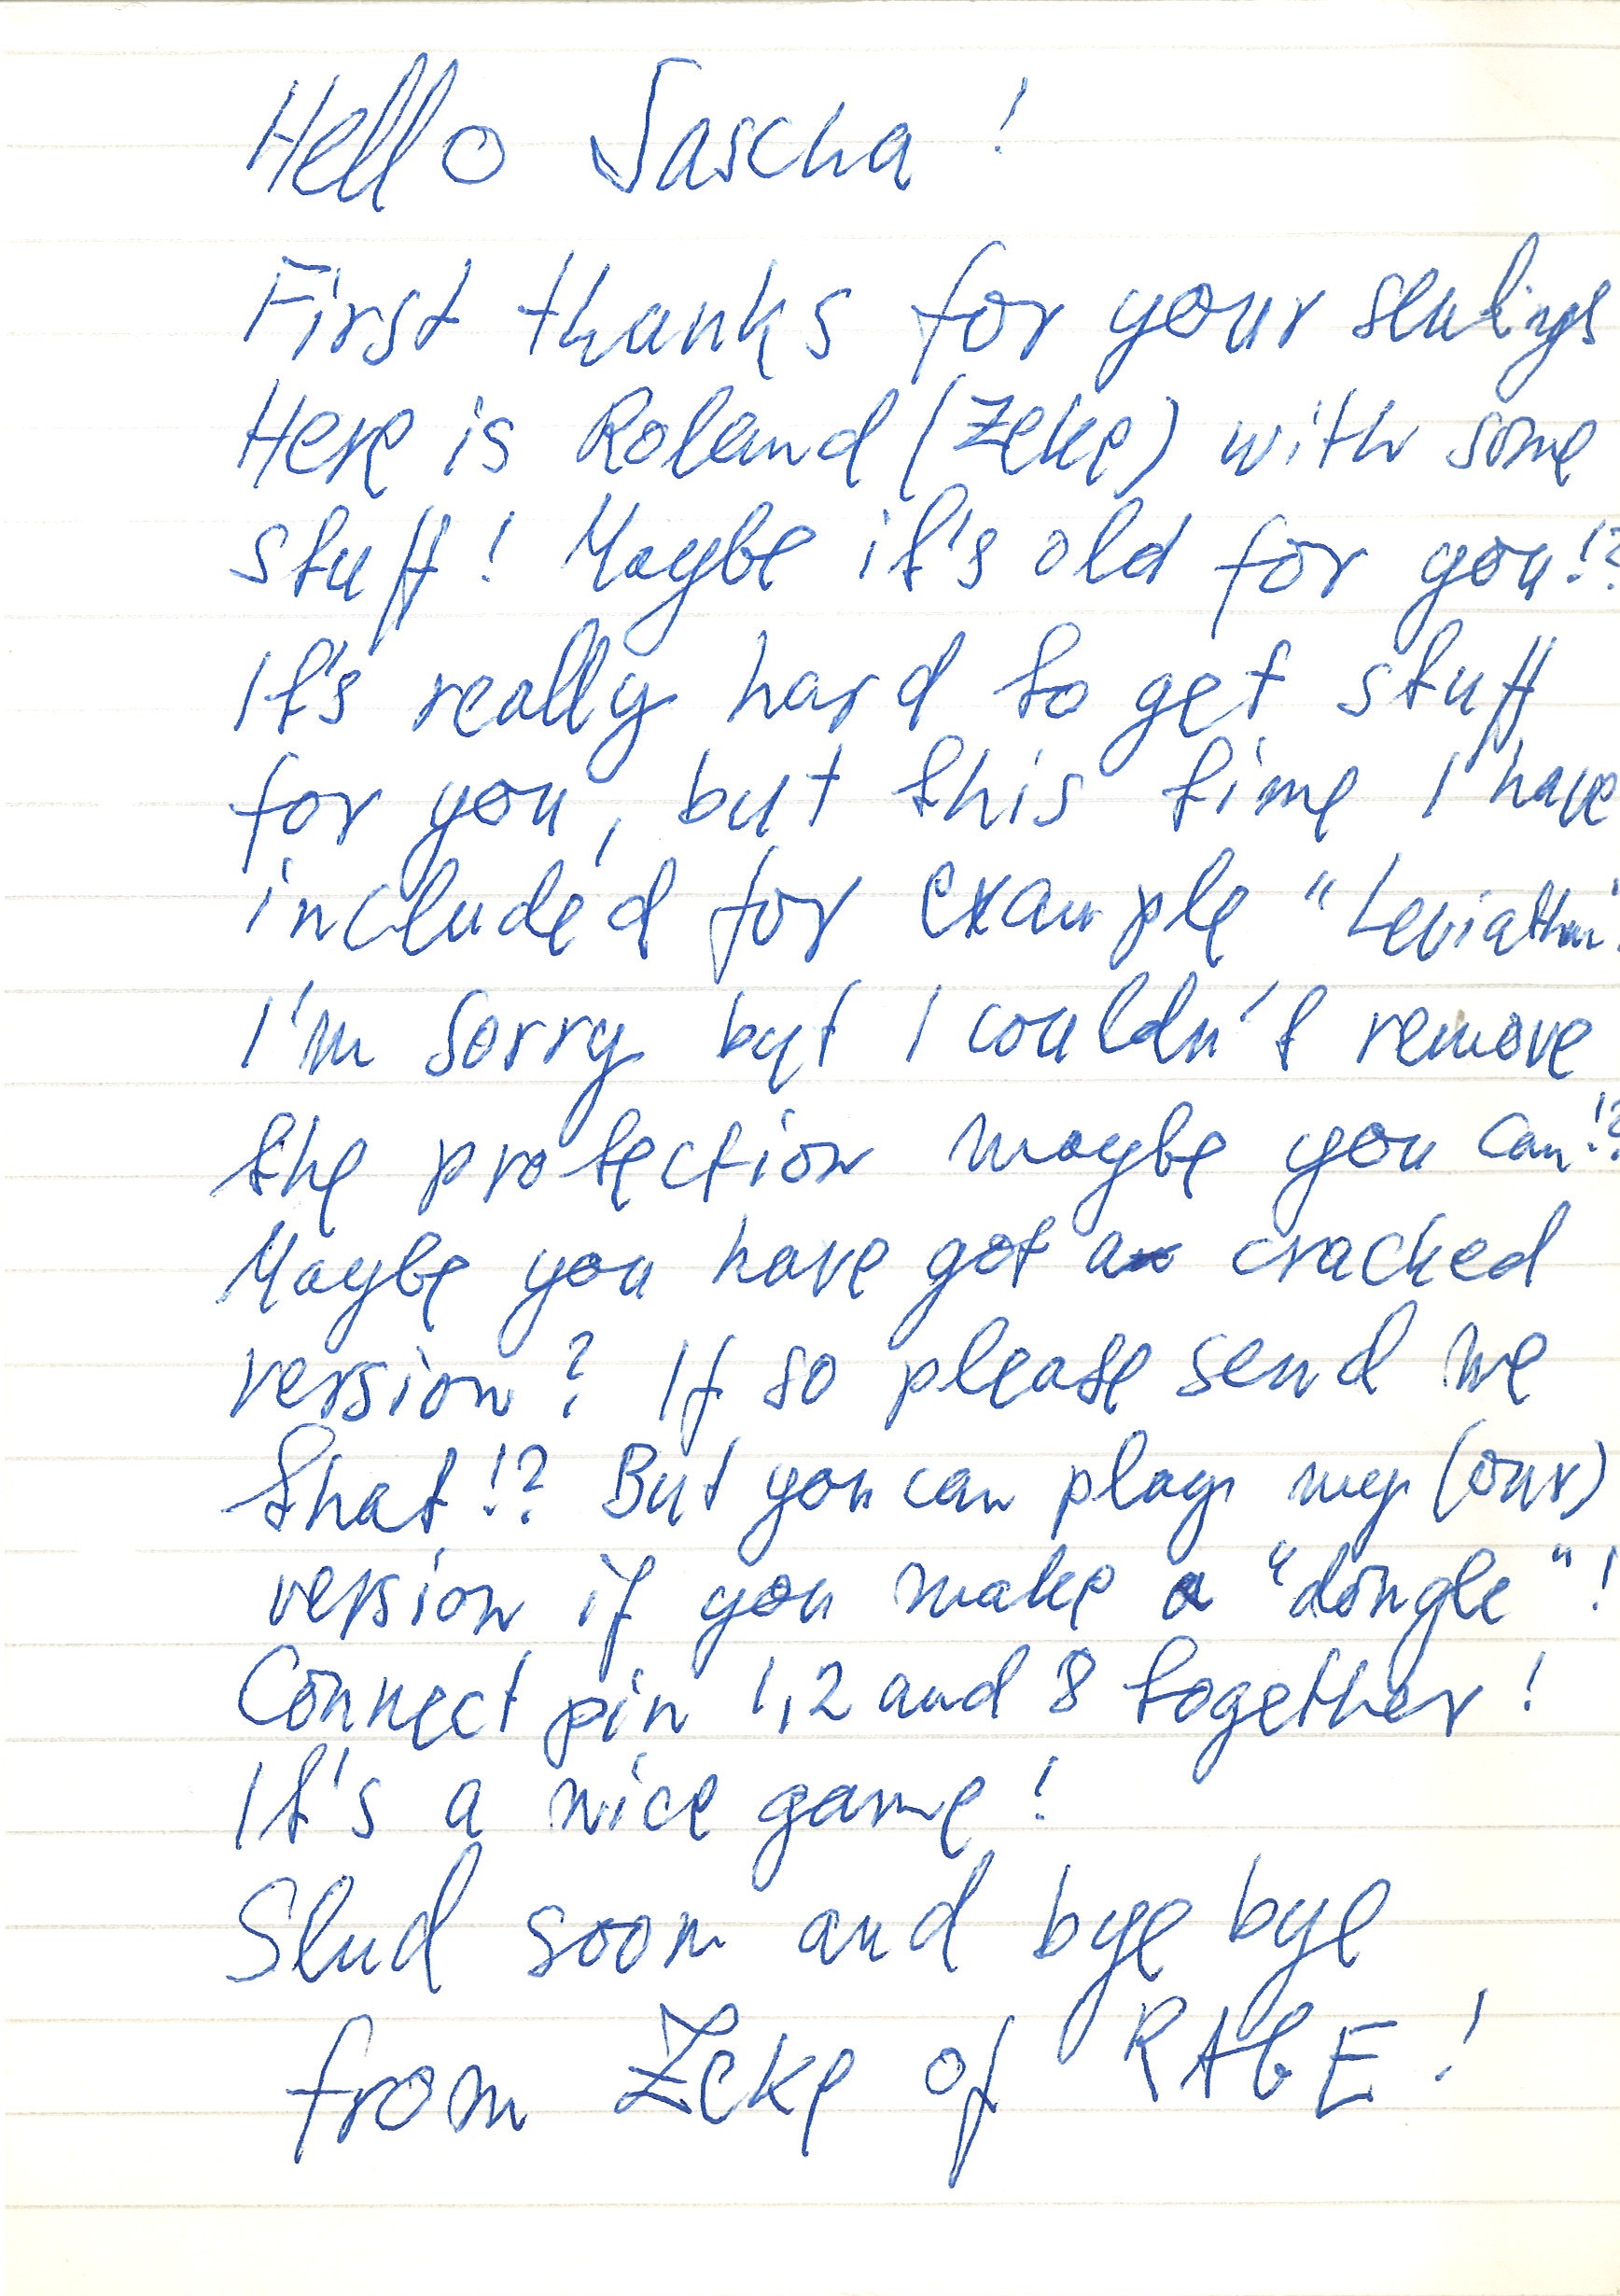 Hello Sascha!
First thanks for your sendings
Here is Roland (Zeke) with some
stuff! Maybe it's old for you!?
It's really hard to get stuff
for you, but this time I have
included for example "Leviathan".
I'm sorry but I couldn't remove
the protection maybe you can!?
Maybe you have got a cracked
version? If so please send me
that!? But you can play my (our)
version if you make a "dongle"!
Connect pin 1,2 and 8 together!
It's a nice game!
Send soon and bye bye
from Zeke of RAGE!